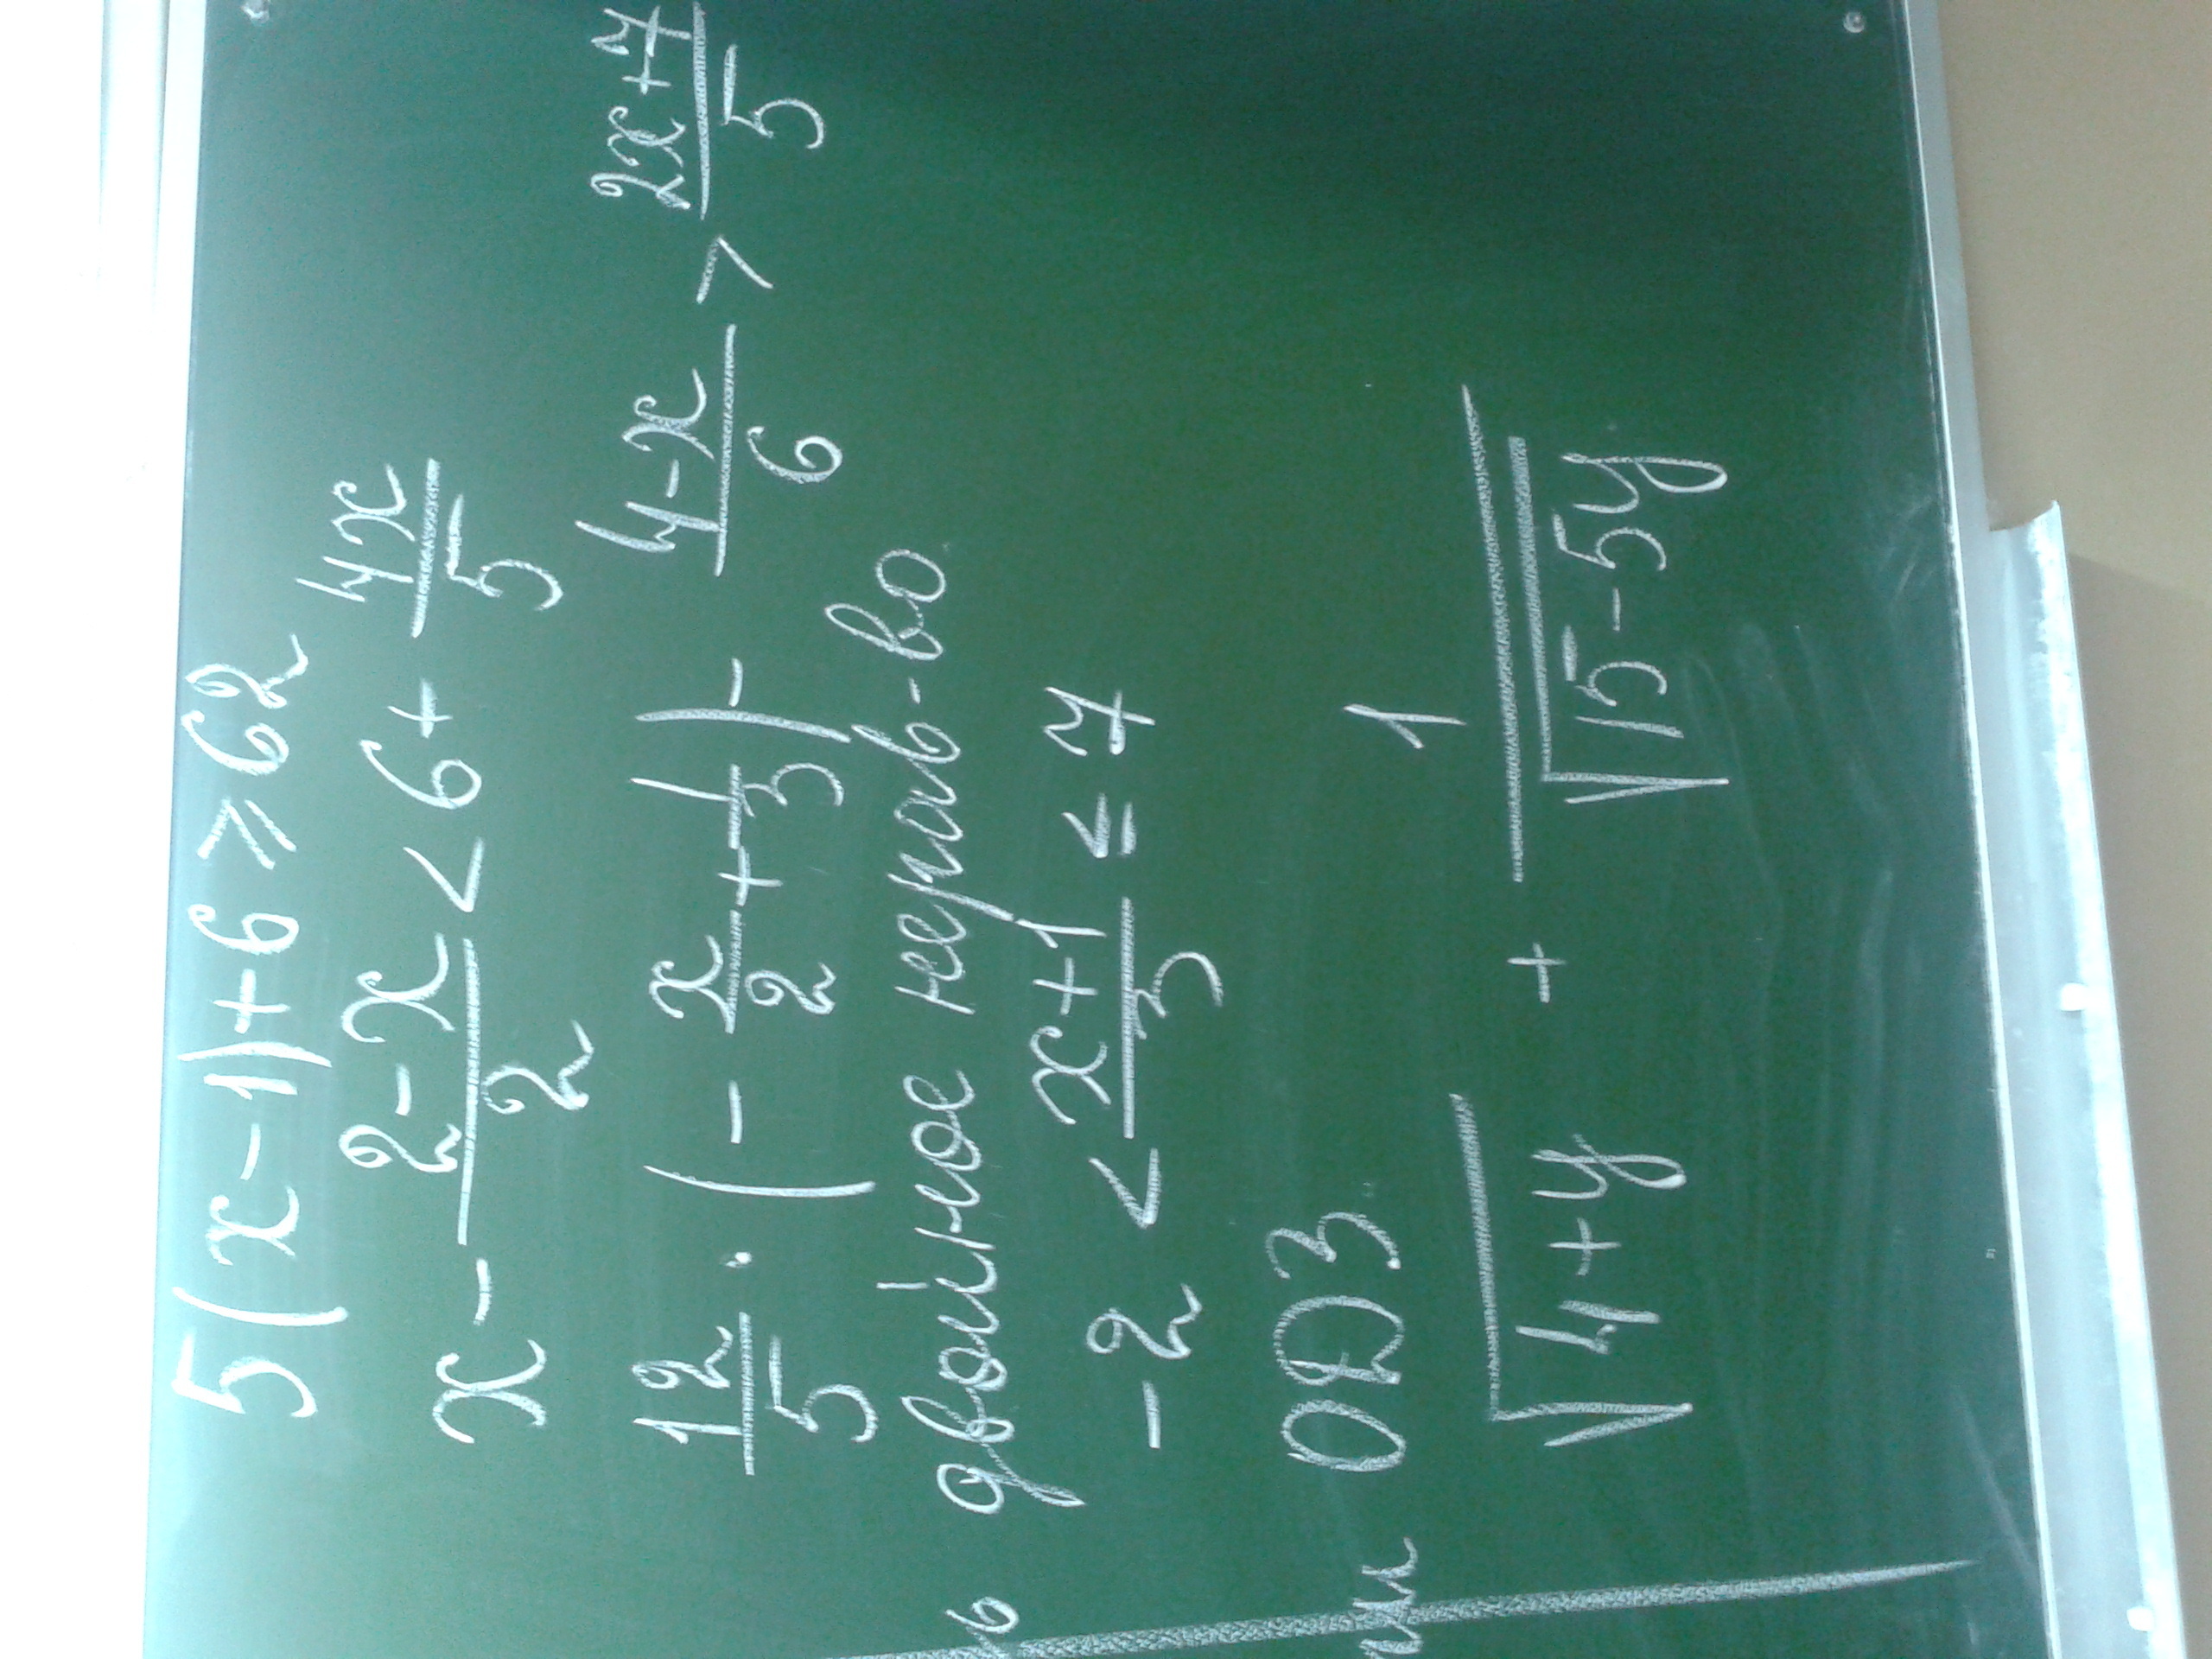 5(x-1)+6 ≥ 62
x - \frac{2-x}{2} < 6 + \frac{4x}{5}
\frac{12}{5} · (-\frac{x}{2} + \frac{1}{3}) - \frac{4-x}{6} > \frac{2x+7}{5}
двойное нерав-во
-2 < \frac{x+1}{3} ≤ 7
ОДЗ
\sqrt{4+y} + \frac{1}{\sqrt{15-5y}}